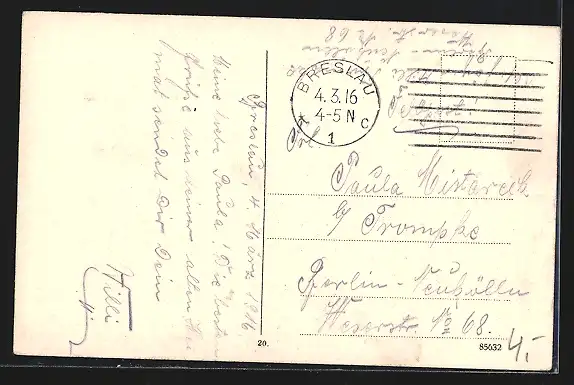 Breslau, 4. März 1916
Meine liebe Paula! Die besten
Grüße aus seiner alten
mat sendet Dir Dein
Willi
BRESLAU
4.3.16
4-5 N
K 1 c
Frl.
Paula Mistarcik
b/ Trompke
Berlin-Neukölln
Weserstr. No 68.
4,-
20.
85032